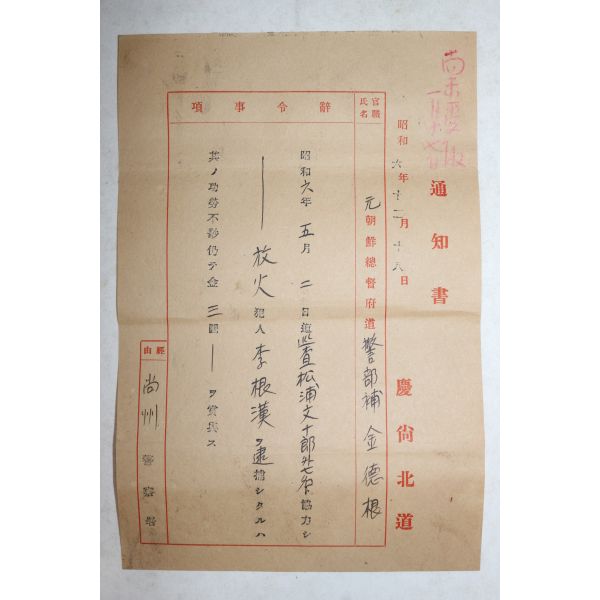 通知書
慶尙北道
昭和六年十二月十六日
官職氏名
元朝鮮總督府道警部補 金德根
辭令事項
昭和六年五月二日道巡査松浦文十郎外七名ト協力シ
放火犯人李根漢ヲ逮捕シタルハ
其ノ功勞不尠仍テ金三圓ヲ賞與ス
經由
尙州警察署